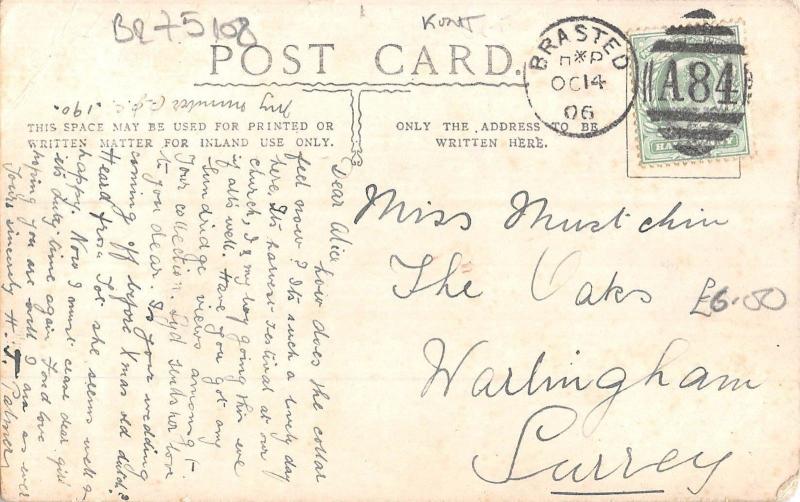 BR75108
Kent
POST CARD.
BRASTED
OC 14
06
A84
HALFPENNY
my number
190.
THIS SPACE MAY BE USED FOR PRINTED OR
WRITTEN MATTER FOR INLAND USE ONLY.
ONLY THE ADDRESS TO BE
WRITTEN HERE.
Dear Alice,
how does the collar
feel now? Its such a lovely day
here, Its harvest festival at our
church, I & my boy going this eve
if alls well. Have you got any
Sundridge views amongst
Your collection. Syd sends her love
to you dear. Is your wedding
coming off before Xmas old dutch?
Heard from she seems well &
happy. Now I must cease dear girl
its time again Fond love
hoping you are well I am as ever
Yours sincerely H. Palmer
Miss Mustchin
The Oaks
£6.50
Warlingham
Surrey